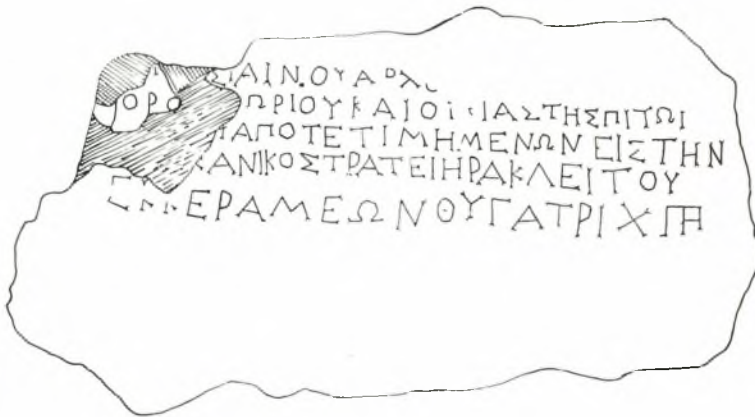 ΑΙΝ.ΟΥΑΡΧ
ΟΡΟ ΩΡΙΟΥΚΑΙΟΙΚΙΑΣΤΗΣΠΙΤΩΙ
ΙΑΠΟΤΕΤΙΜΗΜΕΝΩΝ ΕΙΣΤΗΝ
ΚΑΝΙΚΟΣΤΡΑΤΕΙΗΡΑΚΛΕΙΤΟΥ
ΕΚΚΕΡΑΜΕΩΝΘΥΓΑΤΡΙΧ𐅅